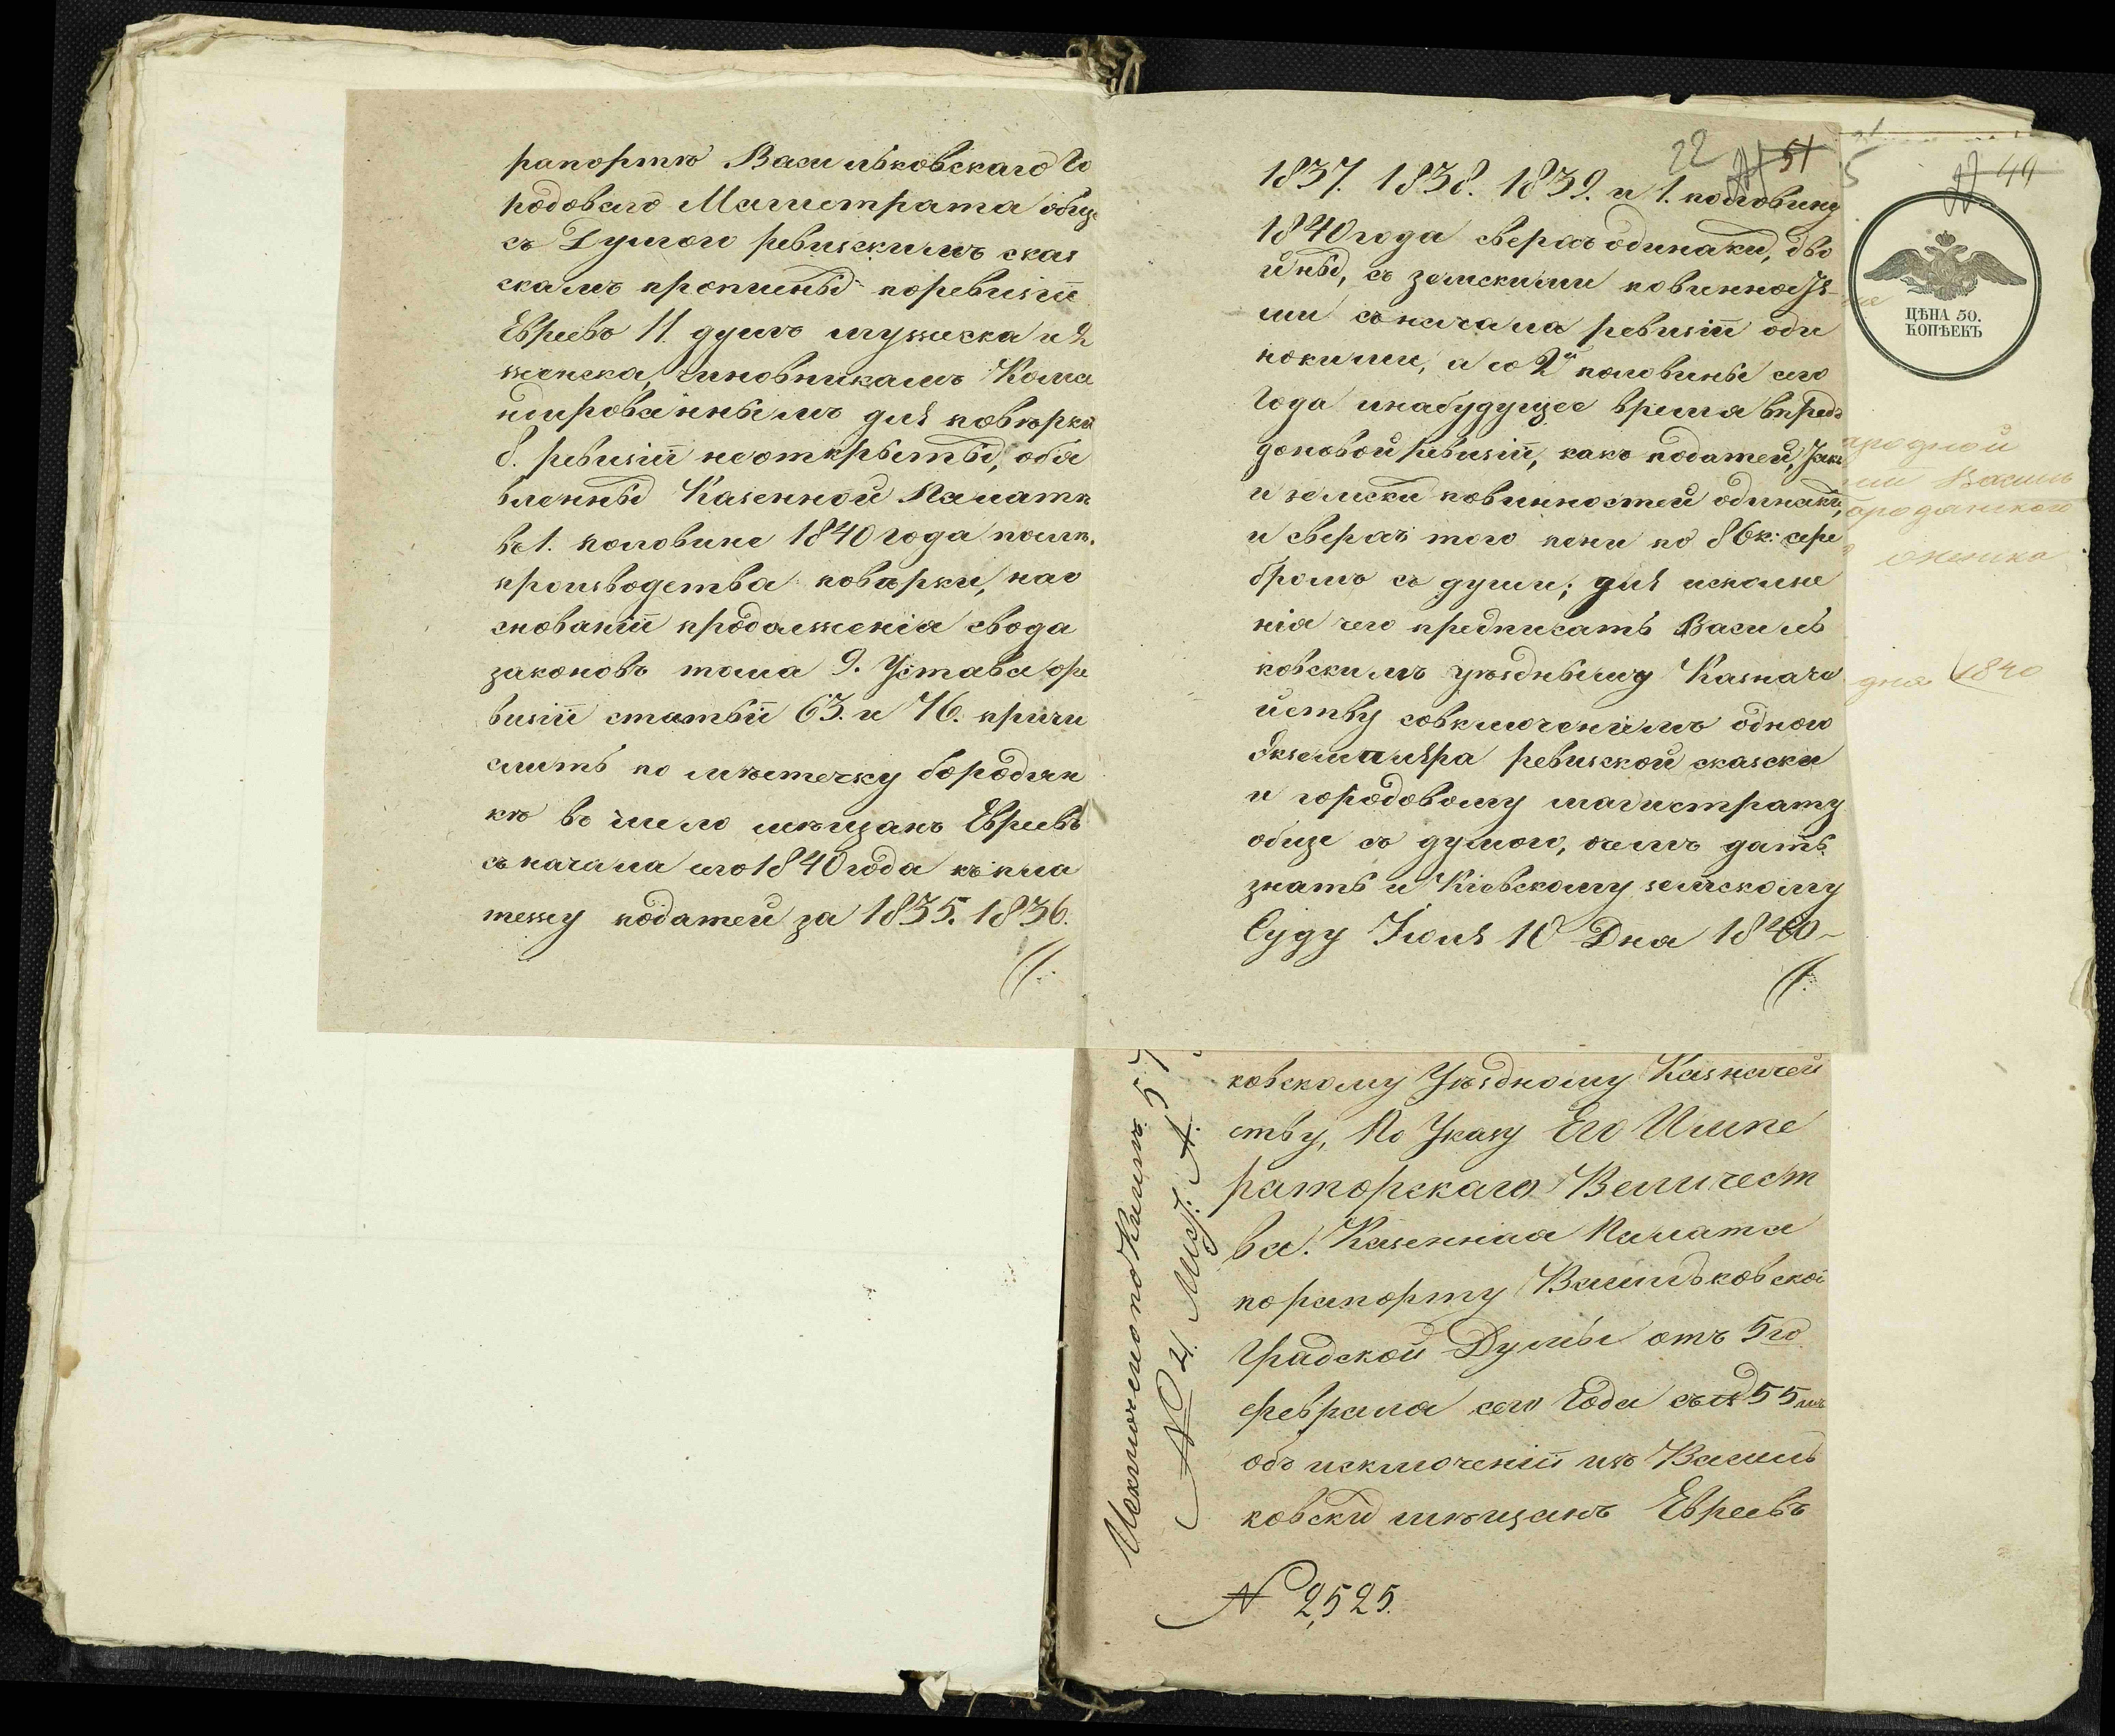 рапортѣ Васильковскаго Го
родоваго Магистрата обще
съ Думою ревизскимъ сказ
скамъ пропищены поревизіи
Евреевъ 11. душъ мужеска и 2
женска, чиновникамъ Кома
ндированнымъ для повѣрки
8. ревизіи неоткрыты, объя
вленны Казенной Палатѣ
въ 1. половине 1840 года послѣ
производства повѣрки, нао
снованіи продолженія свода
законовъ тома 9. Устава оре
визіи статьи 63. и 76. причи
слить по мѣстечку бородян
кѣ въ число мѣщанъ Евреевъ
съ начала сего 1840 года къ пла
тежу податей за 1835. 1836.
22 51
1837. 1838. 1839. и 1. половину
1840 года сверхъ одинаки, дво
йны, съ земскими повинностя
ми съ начала ревизіи оди
нокими, а со 2й половины сего
Года инабудущее время впредь
доновой ревизіи, какъ податей, такъ
и земски повинностей одинаки,
и сверхъ того пени по 86 к: сере
бромъ съ души; для исполне
нія чего предписать Василь
ковскимъ уѣздному Казначе
йству совключеніемъ одного
Экземпляра ревизской сказски
и городовому магистрату
обще съ думою, очемъ дать
знать и Кіевскому земскому
Суду Іюля 10 Дня 1840
5 44
ЦѢНА 50.
КОПѢЕКЪ
ародной
Василь
ородянской
дня 1840
ковскому Уѣздному Казначей
ству, По Указу Его Импе
раторскаго Величест
ва. Казенная Палата
порапорту Васильковской
Градской Думы отъ 5го
февраля сего Года съ № 55мъ
объ исключеніи изъ Василь
ковски мѣщанъ Евреевъ
№ 2,525.
Исключено по Книгѣ 57
№ 4. Лист: А.